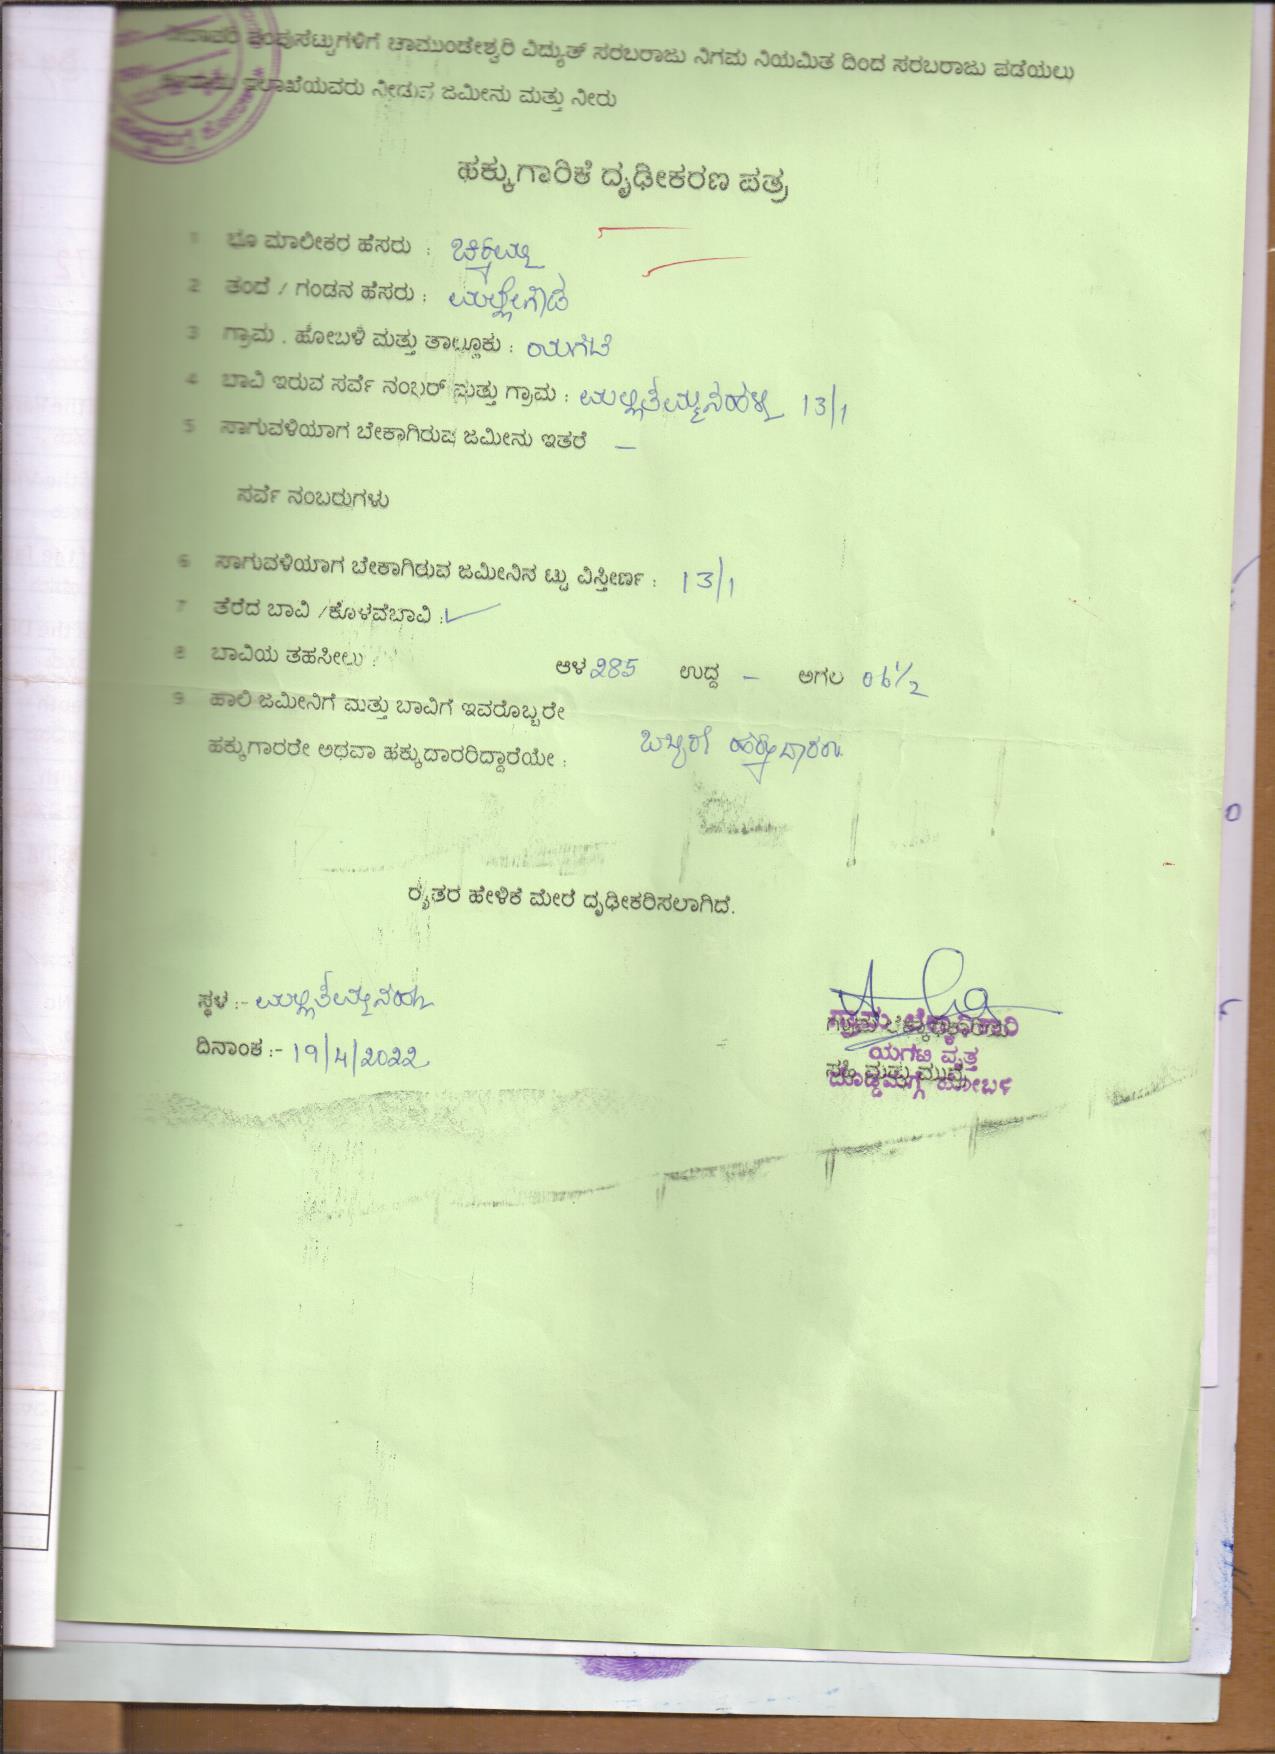 ಪಂಪುಸೆಟ್ಟುಗಳಿಗೆ ಚಾಮುಂಡೇಶ್ವರಿ ವಿದ್ಯುತ್ ಸರಬರಾಜು ನಿಗಮ ನಿಯಮಿತ ದಿಂದ ಸರಬರಾಜು ಪಡೆಯಲು
ಇಲಾಖೆಯವರು ನೀಡುವ ಜಮೀನು ಮತ್ತು ನೀರು
ಹಕ್ಕುಗಾರಿಕೆ ದೃಢೀಕರಣ ಪತ್ರ
1 ಭೂ ಮಾಲೀಕರ ಹೆಸರು :
2 ತಂದೆ / ಗಂಡನ ಹೆಸರು : ಮಲ್ಲೇಗೌಡ
3 ಗ್ರಾಮ . ಹೋಬಳಿ ಮತ್ತು ತಾಲ್ಲೂಕು : ಯಗಟಿ
4 ಬಾವಿ ಇರುವ ಸರ್ವೆ ನಂಬರ್ ಮತ್ತು ಗ್ರಾಮ : ಮಲ್ಲಿತಮ್ಮನಹಳ್ಳಿ 13/1
5 ಸಾಗುವಳಿಯಾಗ ಬೇಕಾಗಿರುವ ಜಮೀನು ಇತರೆ —
ಸರ್ವೆ ನಂಬರುಗಳು
6 ಸಾಗುವಳಿಯಾಗ ಬೇಕಾಗಿರುವ ಜಮೀನಿನ ಟ್ಟು ವಿಸ್ತೀರ್ಣ : 13/1
7 ತೆರೆದ ಬಾವಿ /ಕೊಳವೆಬಾವಿ : ✓
8 ಬಾವಿಯ ತಹಸೀಲು : ಆಳ 285 ಉದ್ದ – ಅಗಲ 06 1/2
9 ಹಾಲಿ ಜಮೀನಿಗೆ ಮತ್ತು ಬಾವಿಗೆ ಇವರೊಬ್ಬರೇ
ಹಕ್ಕುಗಾರರೇ ಅಥವಾ ಹಕ್ಕುದಾರರಿದ್ದಾರೆಯೇ : ಒಬ್ಬರೇ ಹಕ್ಕುದಾರರು
ರೈತರ ಹೇಳಿಕೆ ಮೇರೆ ದೃಢೀಕರಿಸಲಾಗಿದೆ.
ಸ್ಥಳ :- ಮಲ್ಲಿತಮ್ಮನಹಳ್ಳಿ
ದಿನಾಂಕ :- 19/4/2022
ಗ್ರಾಮ ಲೆಕ್ಕಾಧಿಕಾರಿ
ಯಗಟಿ ವೃತ್ತ
ಸಹಿ ಮತ್ತು ಮುದ್ರೆ
ದೊಡ್ಡಮಗ್ಗೆ ಹೋಬಳಿ